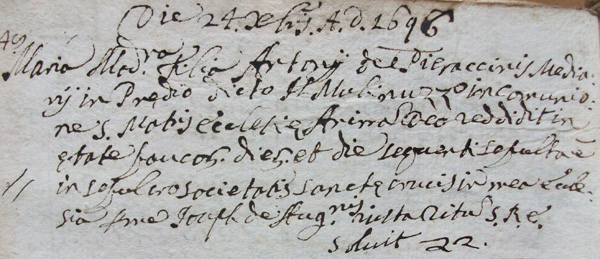 Die 24. Xbris A. D. 1696
Maria Mad.ra filia Antonij de Pieraccinis Media
rij in Predio dicto Il Mulinuzzo in comunio
ne S. Matis Ecclesię Animā Deo reddidit in
ętate paucor. dier. et die sequenti sepulta ē
in sepulcro societatis sanctę crucis in mea Eccle-
sia p me Joseph. de Aug.nis iusta Ritū S. R. E.
soluit 22.